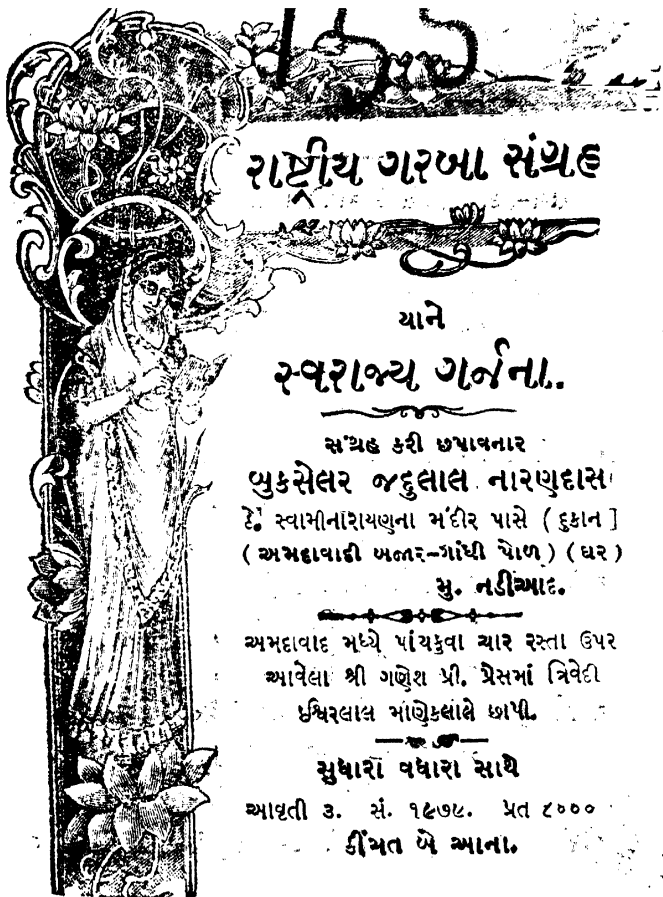 રાષ્ટ્રીય ગરબા સંગ્રહ
યાને
સ્વરાજ્ય ગર્જના.
સંગ્રહ કરી છપાવનાર
બુકસેલર જદુલાલ નારણદાસ
ઠે. સ્વામીનારાયણના મંદીર પાસે ( દુકાન ]
( અમદાવાદી બજાર–ગાંધી પોળ ) ( ઘર )
મુ. નડીઆદ.
અમદાવાદ મધ્યે પાંચકુવા ચાર રસ્તા ઉપર
આવેલા શ્રી ગણેશ પ્રી. પ્રેસમાં ત્રિવેદી
ઇશ્વિરલાલ માણેકલાલે છાપી.
સુધારા વધારા સાથે
આવૃતી ૩. સં. ૧૯૭૯. પ્રત ૮૦૦૦
કીંમત બે આના.